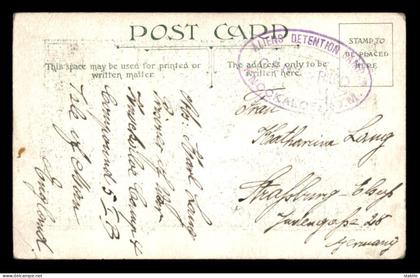 POST CARD
This space may be used for printed or
written matter.
The address only to be
written here.
STAMP TO
BE PLACED
HERE
ALIENS DETENTION
KNOCKALOE I.O.M.
Abs. Karl Lang
Prisoner of War
Knockaloe Camp 4
Compound 5 I B
Isle of Man
England
Frau
Katharina Lang
Strassburg Els.
Judengasse 28
Germany